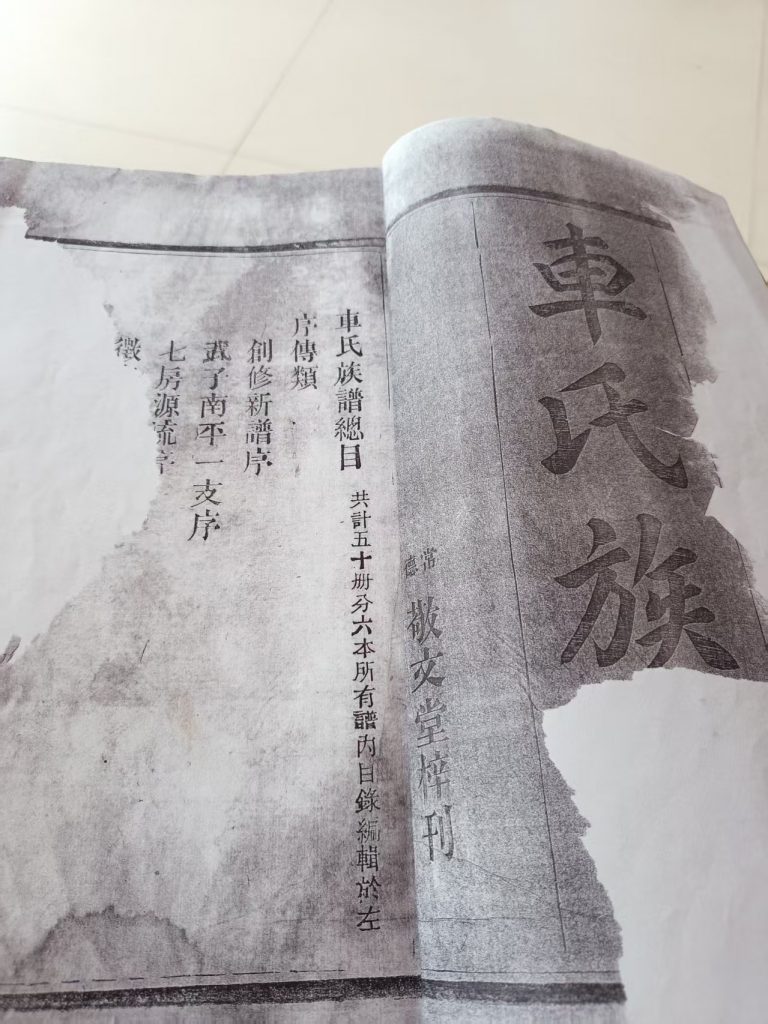 車氏族
常德
敬文堂梓刊
車氏族譜總目 共計五十冊分六本所有譜內目錄編輯於左
序傳類
創修新譜序
武子南平一支序
七房源流序
徵